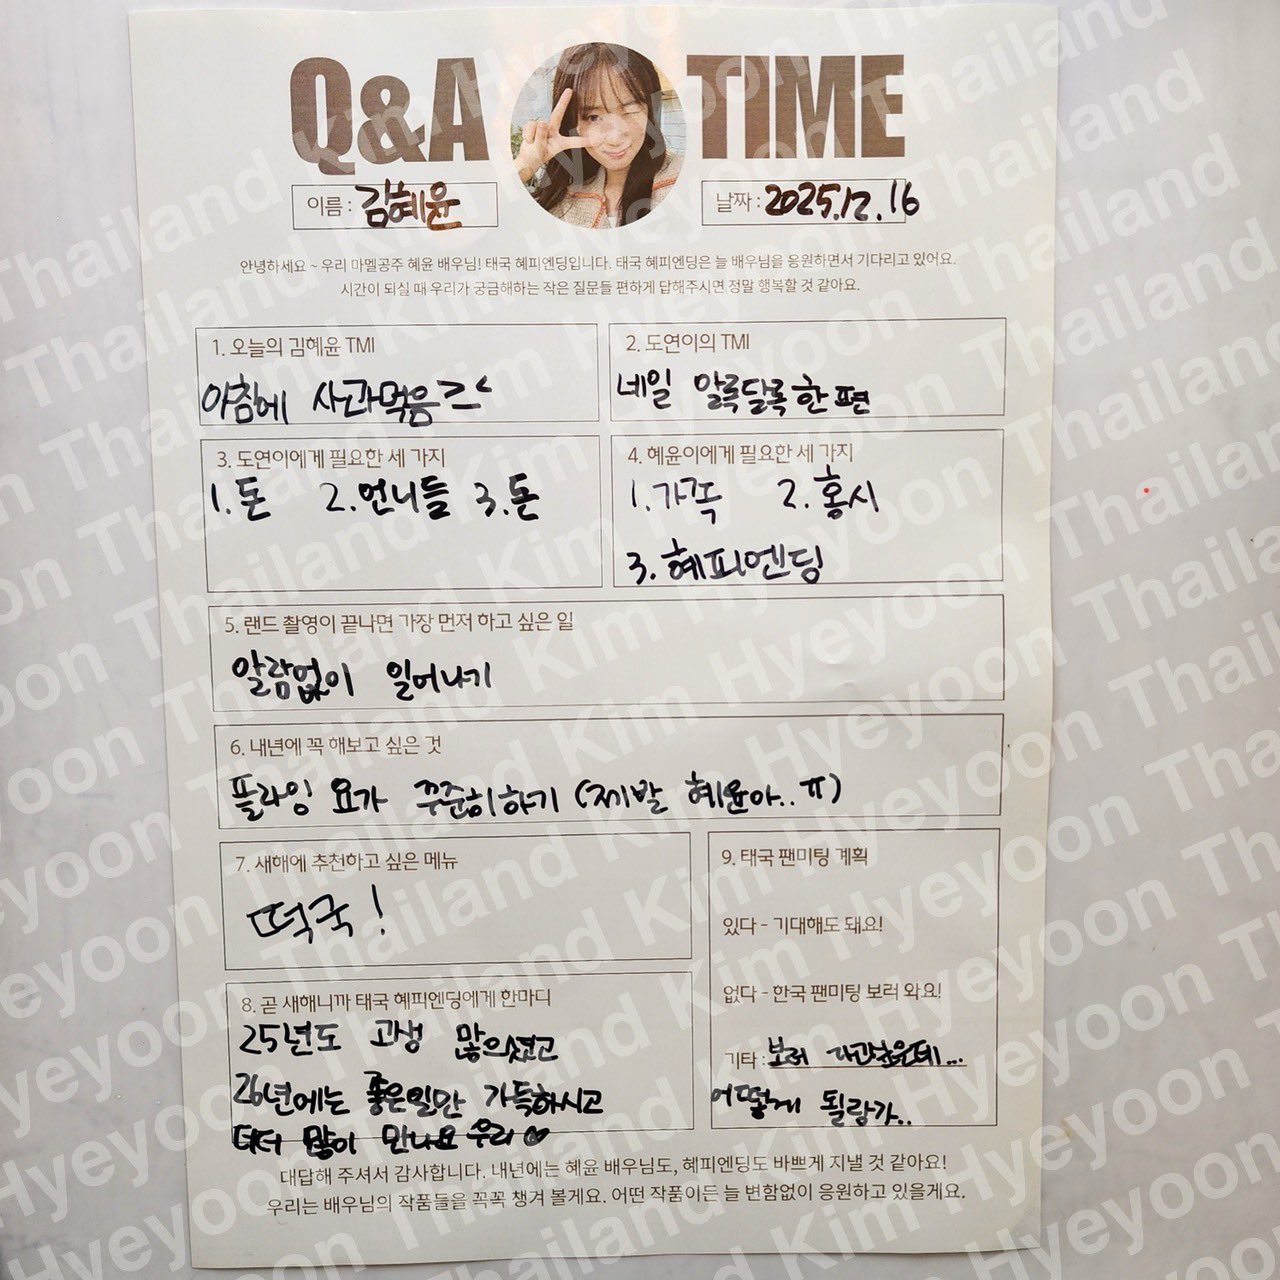 Q&A TIME
이름 : 김혜윤
날짜 : 2025.12.16
안녕하세요 ~ 우리 마멜공주 혜윤 배우님! 태국 혜피엔딩입니다. 태국 혜피엔딩은 늘 배우님을 응원하면서 기다리고 있어요.
시간이 되실 때 우리가 궁금해하는 작은 질문들 편하게 답해주시면 정말 행복할 것 같아요.
1. 오늘의 김혜윤 TMI
아침에 사과먹음ㄱㄴ
2. 도연이의 TMI
네일 알록달록한 편
3. 도연이에게 필요한 세 가지
1. 돈 2. 언니들 3. 돈
4. 혜윤이에게 필요한 세 가지
1. 가족 2. 홍시
3. 혜피엔딩
5. 랜드 촬영이 끝나면 가장 먼저 하고 싶은 일
알람없이 일어나기
6. 내년에 꼭 해보고 싶은 것
플라잉 요가 꾸준히하기 (제발 혜윤아.. ㅠ)
7. 새해에 추천하고 싶은 메뉴
떡국!
8. 곧 새해니까 태국 혜피엔딩에게 한마디
25년도 고생 많으셨고
26년에는 좋은일만 가득하시고
더더 많이 만나요 우리♡
9. 태국 팬미팅 계획
있다 - 기대해도 돼요!
없다 - 한국 팬미팅 보러 와요!
기타 : 보러 가고싶은데...
어떻게 될랑가..
대답해 주셔서 감사합니다. 내년에는 혜윤 배우님도, 혜피엔딩도 바쁘게 지낼 것 같아요!
우리는 배우님의 작품들을 꼭꼭 챙겨 볼게요. 어떤 작품이든 늘 변함없이 응원하고 있을게요.
Kim Hyeyoon Thailand